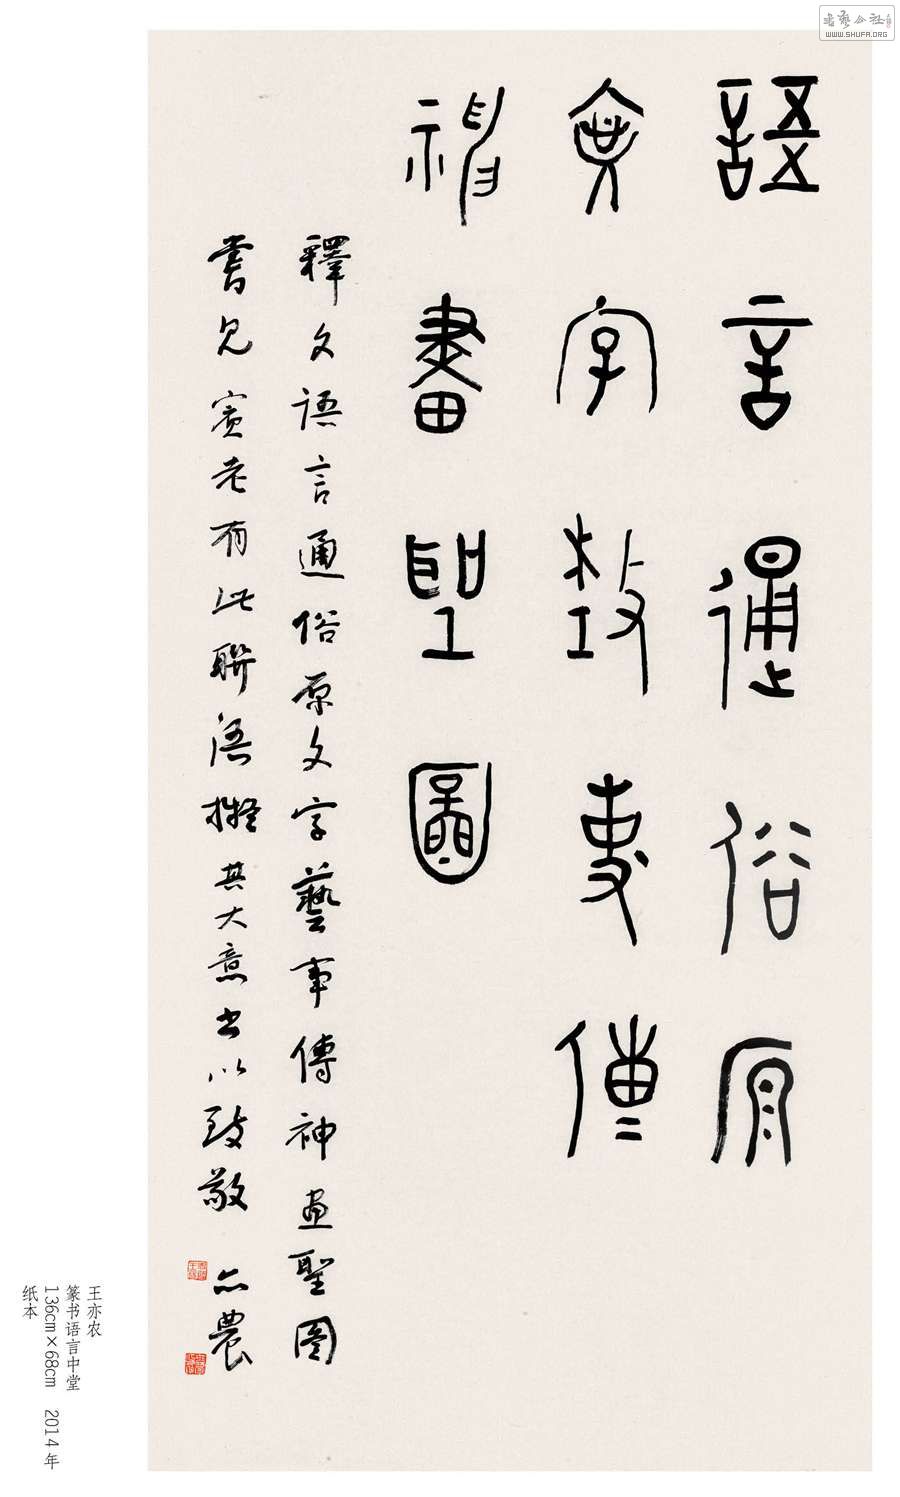 語言通俗原
文字藝事傳
神畫聖圖
釋文語言通俗原文字藝事傳神画聖图
嘗見賓老有此聯語擬其大意書以致敬 亦農
王亦农
篆书语言中堂
136cm×68cm 2014年
纸本
WWW.SHUFA.ORG